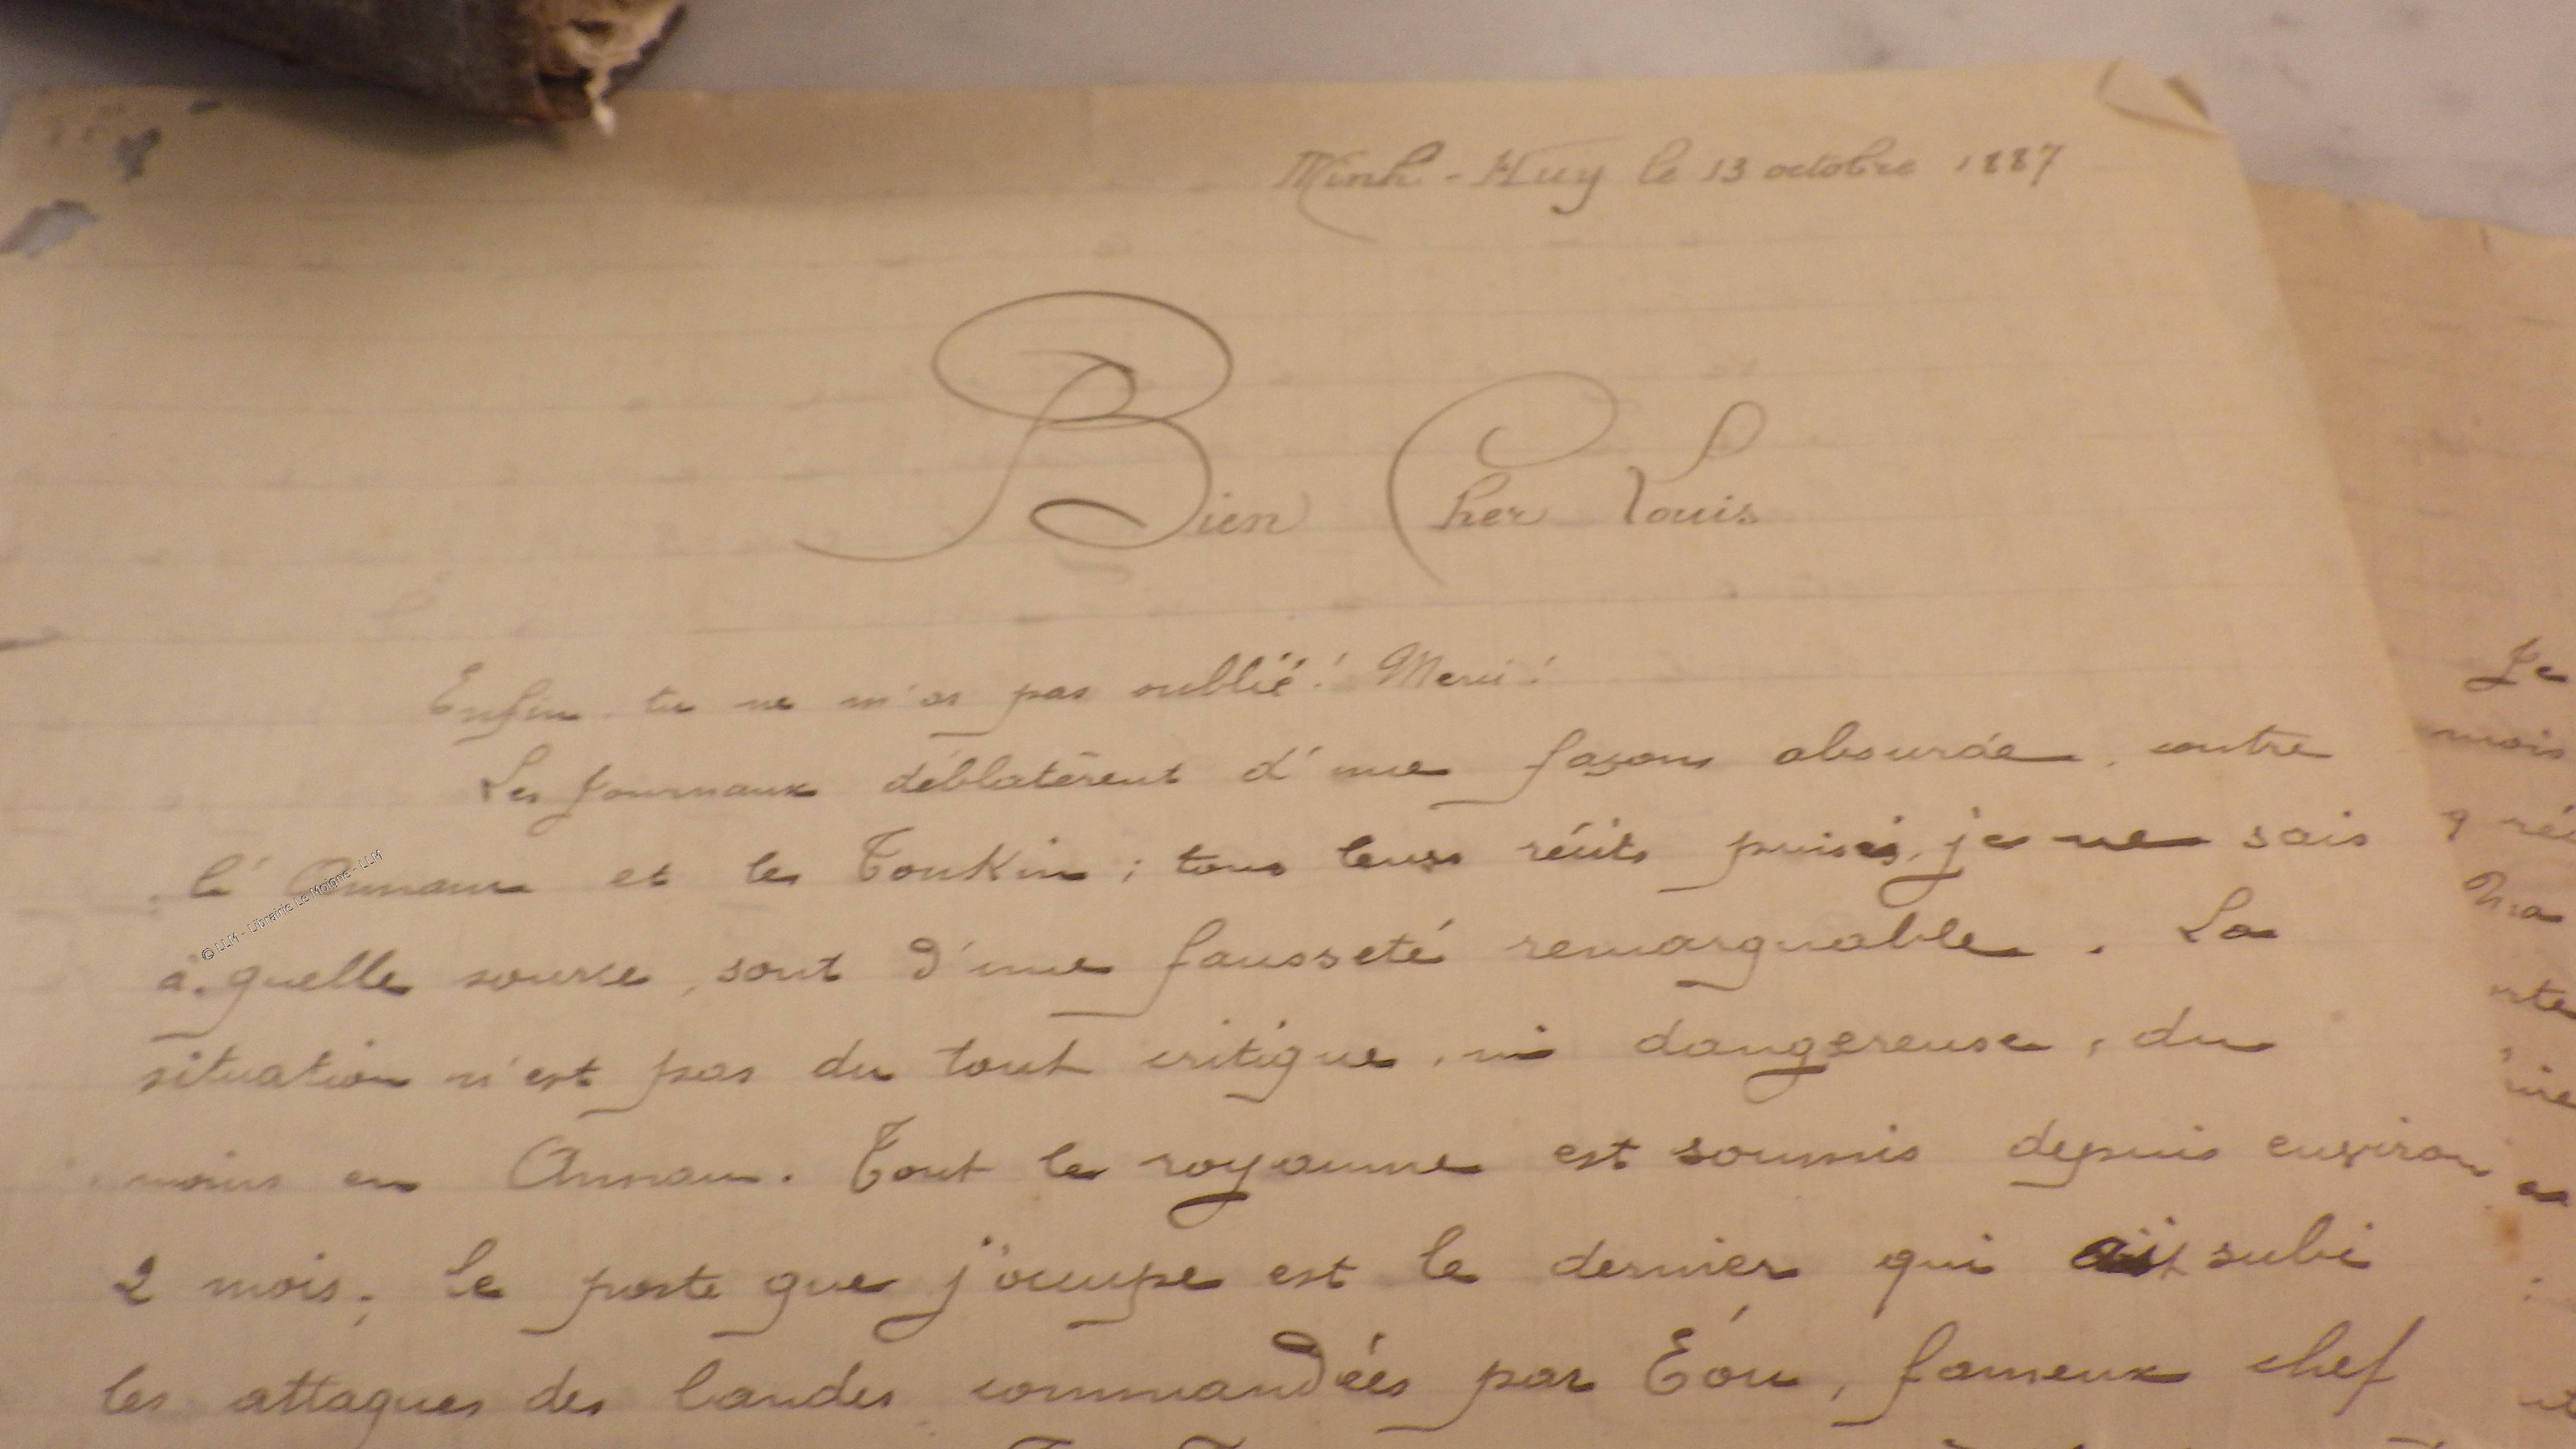 Minh-Huy le 13 octobre 1887
Bien Cher Louis
Enfin tu ne m'as pas oublié! Merci!
Les journaux déblatèrent d'une façon absurde, contre
l'Annam et le Tonkin; tous leurs récits puisés, je ne sais
à quelle source, sont d'une fausseté remarquable. La
situation n'est pas du tout critique, ni dangereuse, du
moins en Annam. Tout le royaume est soumis depuis environ
2 mois; le poste que j'occupe est le dernier qui ait subi
les attaques des bandes commandées par , fameux chef
Je
mois
Ma
© LLM - Librairie Le Moigne - LLM